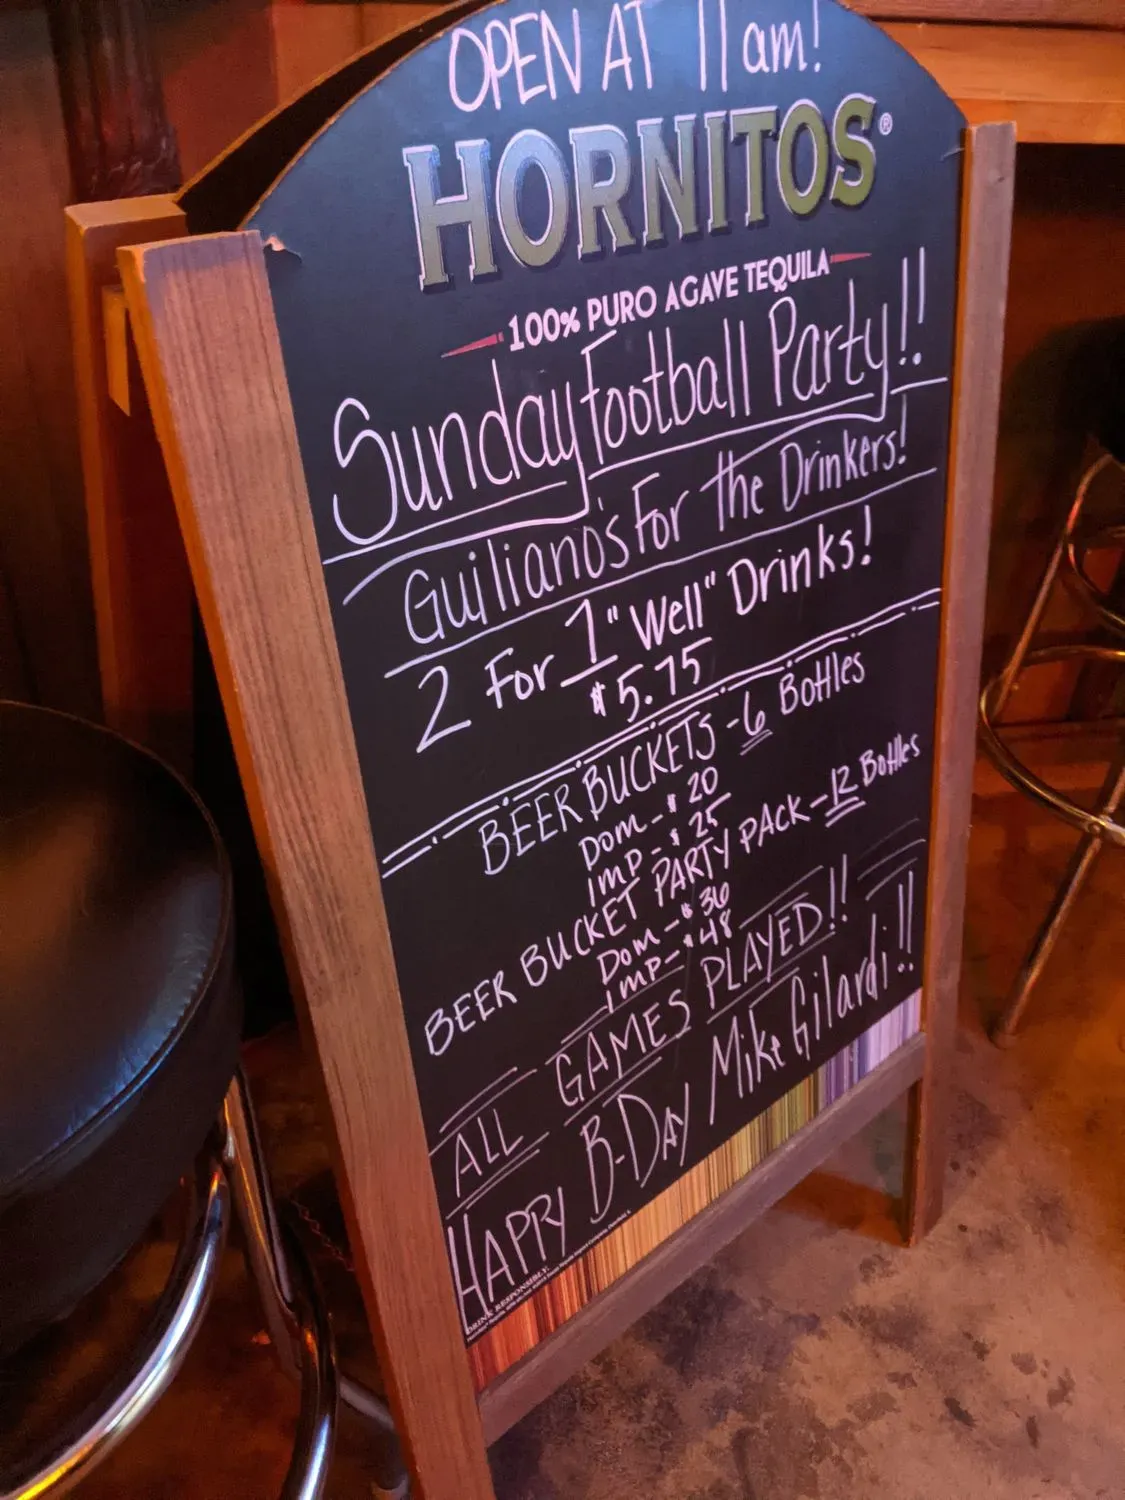 OPEN AT 11am!
HORNITOS®
100% PURO AGAVE TEQUILA
Sunday Football Party!!
Guiliano's For The Drinkers!
2 For 1 "Well" Drinks!
$5.75
BEER BUCKETS - 6 Bottles
DOM - $20
IMP - $25
BEER BUCKET PARTY PACK - 12 Bottles
DOM - $36
IMP - $48
ALL GAMES PLAYED!!
HAPPY B-DAY Mike Gilardi!!
DRINK RESPONSIBLY.